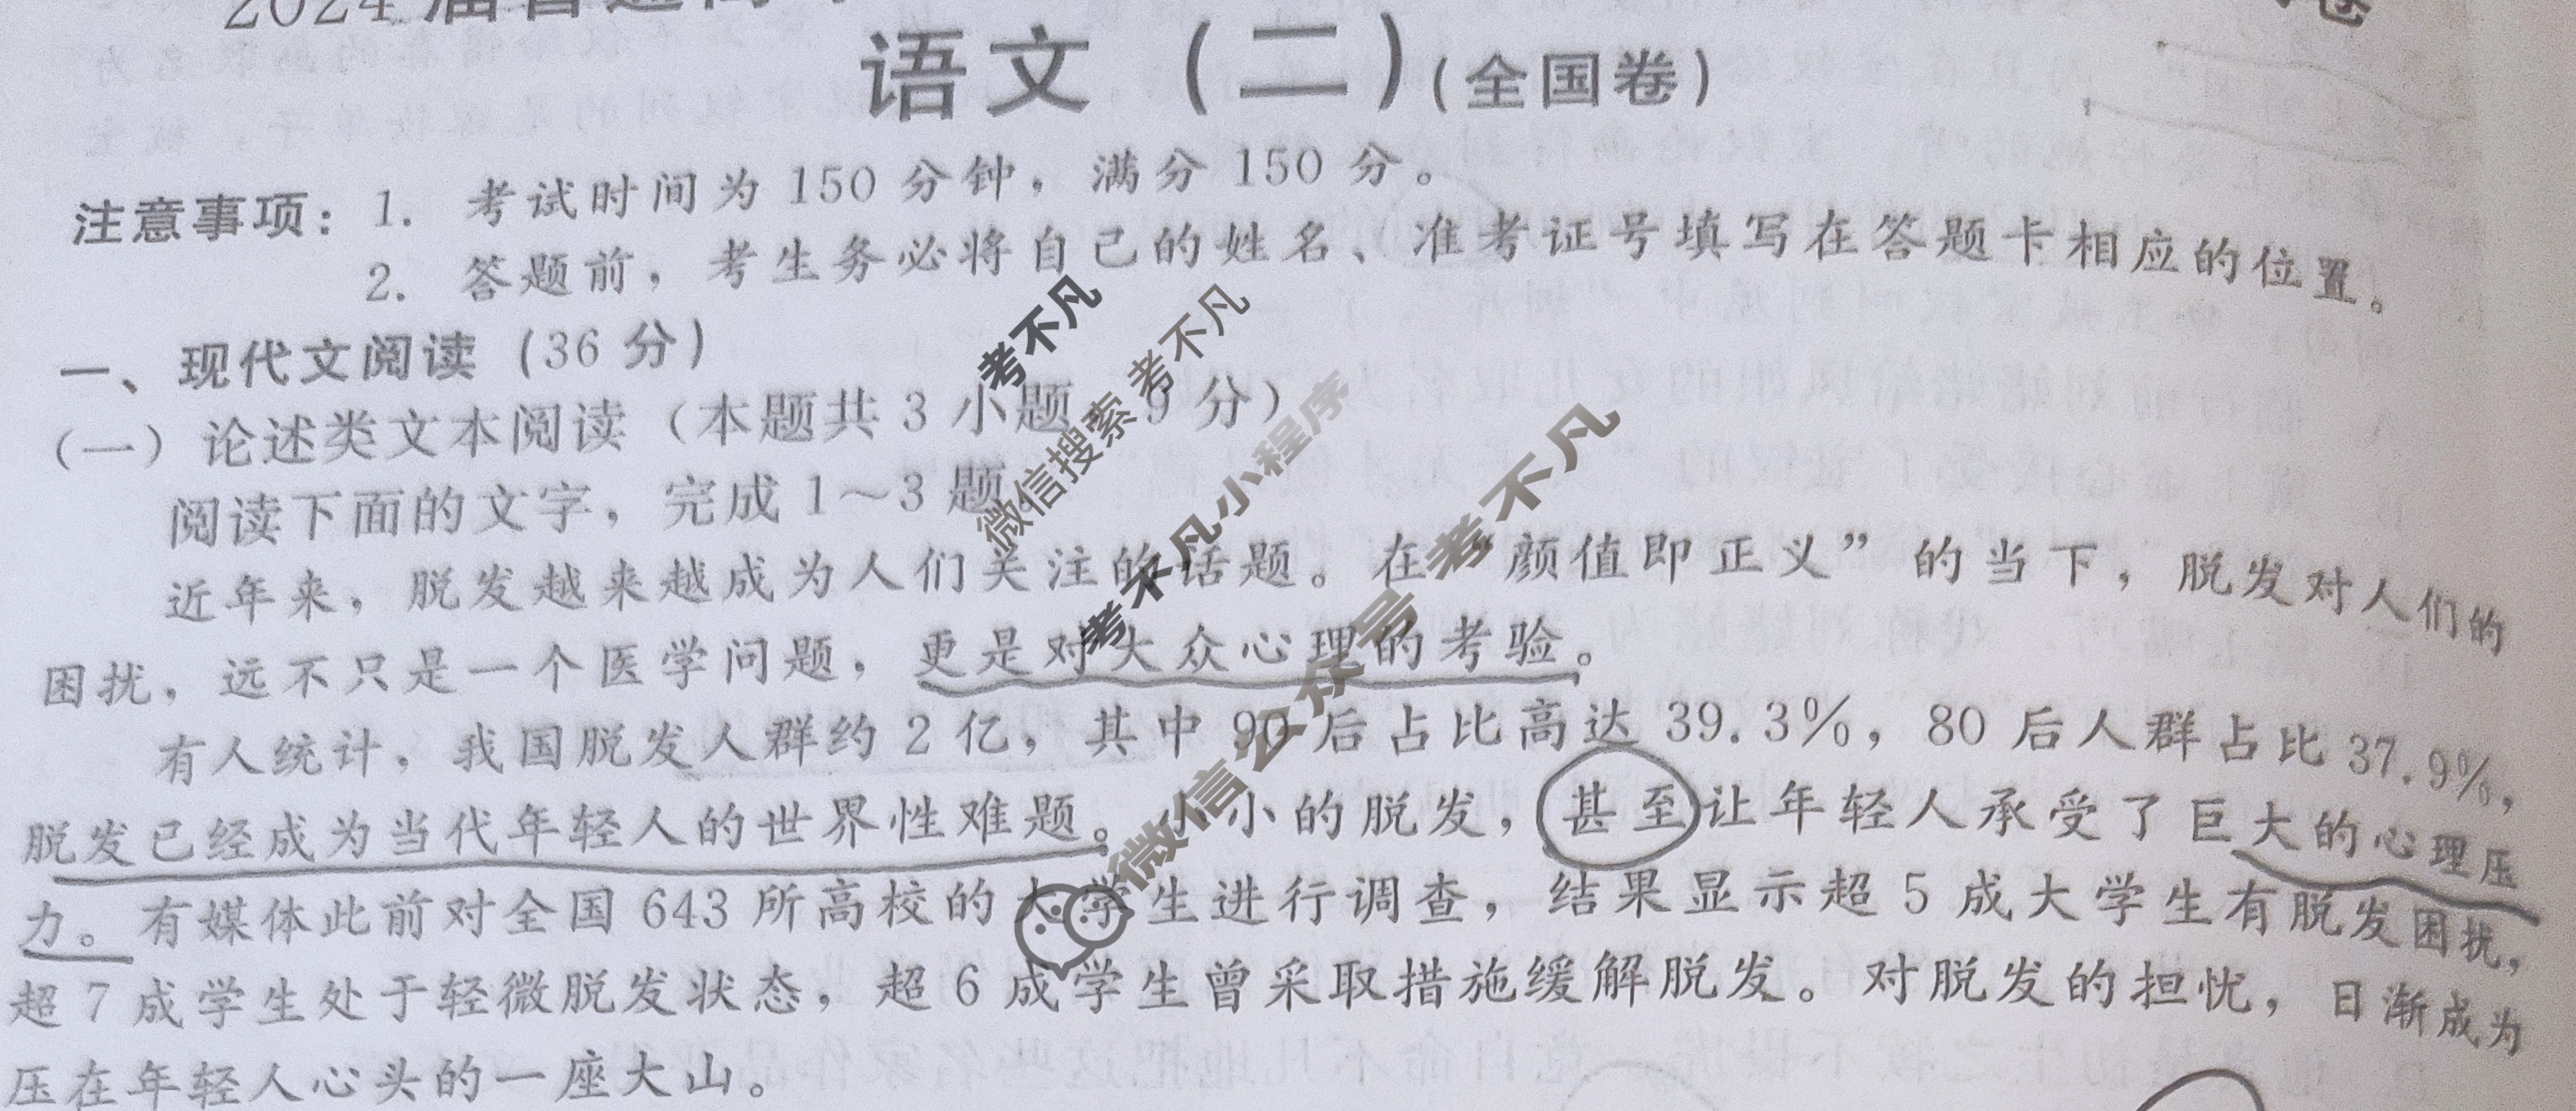 2024届普通高
卷
语文（二）(全国卷)
注意事项：1. 考试时间为150分钟，满分150分。
2. 答题前，考生务必将自己的姓名、准考证号填写在答题卡相应的位置。
一、现代文阅读（36分）
（一）论述类文本阅读（本题共3小题 9分）
阅读下面的文字，完成1～3题。
近年来，脱发越来越成为人们关注的话题。在“颜值即正义”的当下，脱发对人们的
困扰，远不只是一个医学问题，更是对大众心理的考验。
有人统计，我国脱发人群约2亿，其中90后占比高达39.3%，80后人群占比37.9%，
脱发已经成为当代年轻人的世界性难题。小小的脱发，甚至让年轻人承受了巨大的心理压
力。有媒体此前对全国643所高校的大学生进行调查，结果显示超5成大学生有脱发困扰，
超7成学生处于轻微脱发状态，超6成学生曾采取措施缓解脱发。对脱发的担忧，日渐成为
压在年轻人心头的一座大山。
考不凡
微信搜索 考不凡
考不凡小程序
微信公众号 考不凡